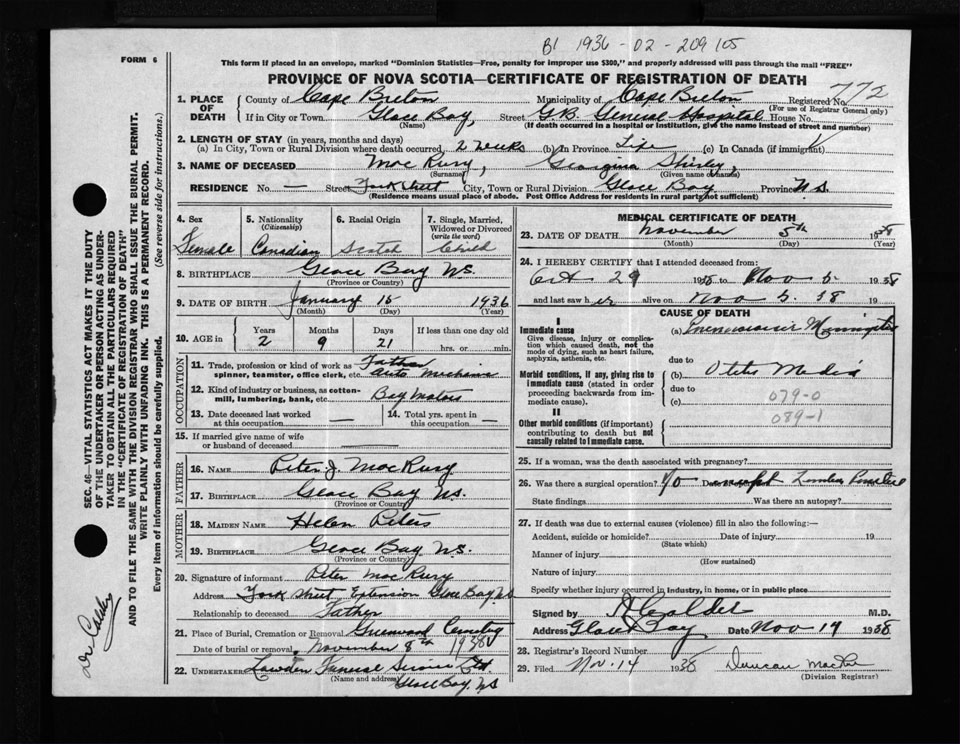 B1 1936 - 02 - 209105
FORM 6
This form if placed in an envelope, marked "Dominion Statistics—Free, penalty for improper use $300," and properly addressed will pass through the mail "FREE"
PROVINCE OF NOVA SCOTIA—CERTIFICATE OF REGISTRATION OF DEATH
772
1. PLACE OF DEATH County of Cape Breton Municipality of Cape Breton Registered No.
(For use of Registrar General only)
If in City or Town Glace Bay, Street G.B. General Hospital House No.
(Name) (If death occurred in a hospital or institution, give the name instead of street and number)
2. LENGTH OF STAY (in years, months and days)
(a) In City, Town or Rural Division where death occurred, 2 weeks (b) In Province Life (c) In Canada (if immigrant)
3. NAME OF DECEASED Mac Rury Georgina Shirley,
(Surname) (Given or names)
RESIDENCE No. — Street York Street City, Town or Rural Division Glace Bay Province N.S.
(Residence means usual place of abode. Post Office Address for residents in rural parts not sufficient)
4. Sex
Female
5. Nationality
(Citizenship)
Canadian
6. Racial Origin
Scotch
7. Single, Married, Widowed or Divorced
(write the word)
Child
8. BIRTHPLACE Glace Bay N.S.
(Province or Country)
9. DATE OF BIRTH January 15 1936
(Month) (Day) (Year)
10. AGE in Years Months Days If less than one day old
2 9 21 hrs. or min.
OCCUPATION
11. Trade, profession or kind of work as spinner, teamster, office clerk, etc. Father Auto Mechanic
12. Kind of industry or business, as cotton-mill, lumbering, bank, etc. Bay Motors
13. Date deceased last worked at this occupation —
14. Total yrs. spent in this occupation —
15. If married give name of wife or husband of deceased —
FATHER
16. NAME Peter J. Mac Rury
17. BIRTHPLACE Glace Bay N.S.
(Province or Country)
MOTHER
18. MAIDEN NAME Helen Peters
19. BIRTHPLACE Glace Bay N.S.
(Province or Country)
20. Signature of informant Peter Mac Rury
Address York Street Extension Glace Bay N.S
Relationship to deceased Father
21. Place of Burial, Cremation or Removal Greenwood Cemetery
Date of burial or removal November 8th 1938
22. UNDERTAKER Funeral Service Ltd
(Name and address)
Glace Bay. N.S
MEDICAL CERTIFICATE OF DEATH
23. DATE OF DEATH November 5th 1938
(Month) (Day) (Year)
24. I HEREBY CERTIFY that I attended deceased from:
Oct 29 1938 to Nov 5. 1938
and last saw her alive on Nov 5. 38 19
CAUSE OF DEATH
I
Immediate cause
Give disease, injury or complication which caused death, not the mode of dying, such as heart failure, asphyxia, asthenia, etc.
(a) Meningitis
due to
Morbid conditions, if any, giving rise to immediate cause (stated in order proceeding backwards from immediate cause).
(b) Otitis Media
due to
(c)
079-0
089-1
II
Other morbid conditions (if important) contributing to death but not causally related to immediate cause.
25. If a woman, was the death associated with pregnancy?
26. Was there a surgical operation? No except Lumbar
State findings Was there an autopsy?
27. If death was due to external causes (violence) fill in also the following:—
Accident, suicide or homicide? Date of injury 19
(State which)
Manner of injury
(How sustained)
Nature of injury
Specify whether injury occurred in industry, in home, or in public place
Signed by A Calder M.D.
Address Glace Bay Date Nov 14 1938
28. Registrar's Record Number
29. Filed Nov. 14 1938 Duncan
(Division Registrar)
SEC. 46—VITAL STATISTICS ACT MAKES IT THE DUTY
OF THE UNDERTAKER OR PERSON ACTING AS UNDER-
TAKER TO OBTAIN ALL THE PARTICULARS REQUIRED
IN THE "CERTIFICATE OF REGISTRATION OF DEATH"
AND TO FILE THE SAME WITH THE DIVISION REGISTRAR WHO SHALL ISSUE THE BURIAL PERMIT.
WRITE PLAINLY WITH UNFADING INK. THIS IS A PERMANENT RECORD.
Every item of information should be carefully supplied. (See reverse side for instructions.)
Dr Calder